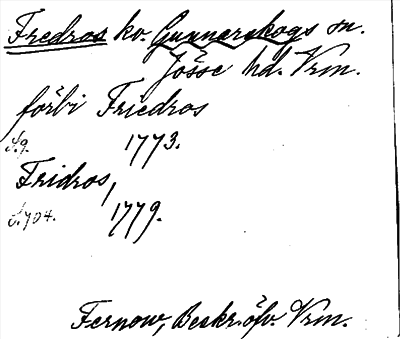 Fredros kv. Gunnarskogs sn.
Jösse hd. Vrm.
förbi Friedros
S.9. 1773.
Fridros,
S.704. 1779.
Fernow, Beskr.öfv. Vrm.